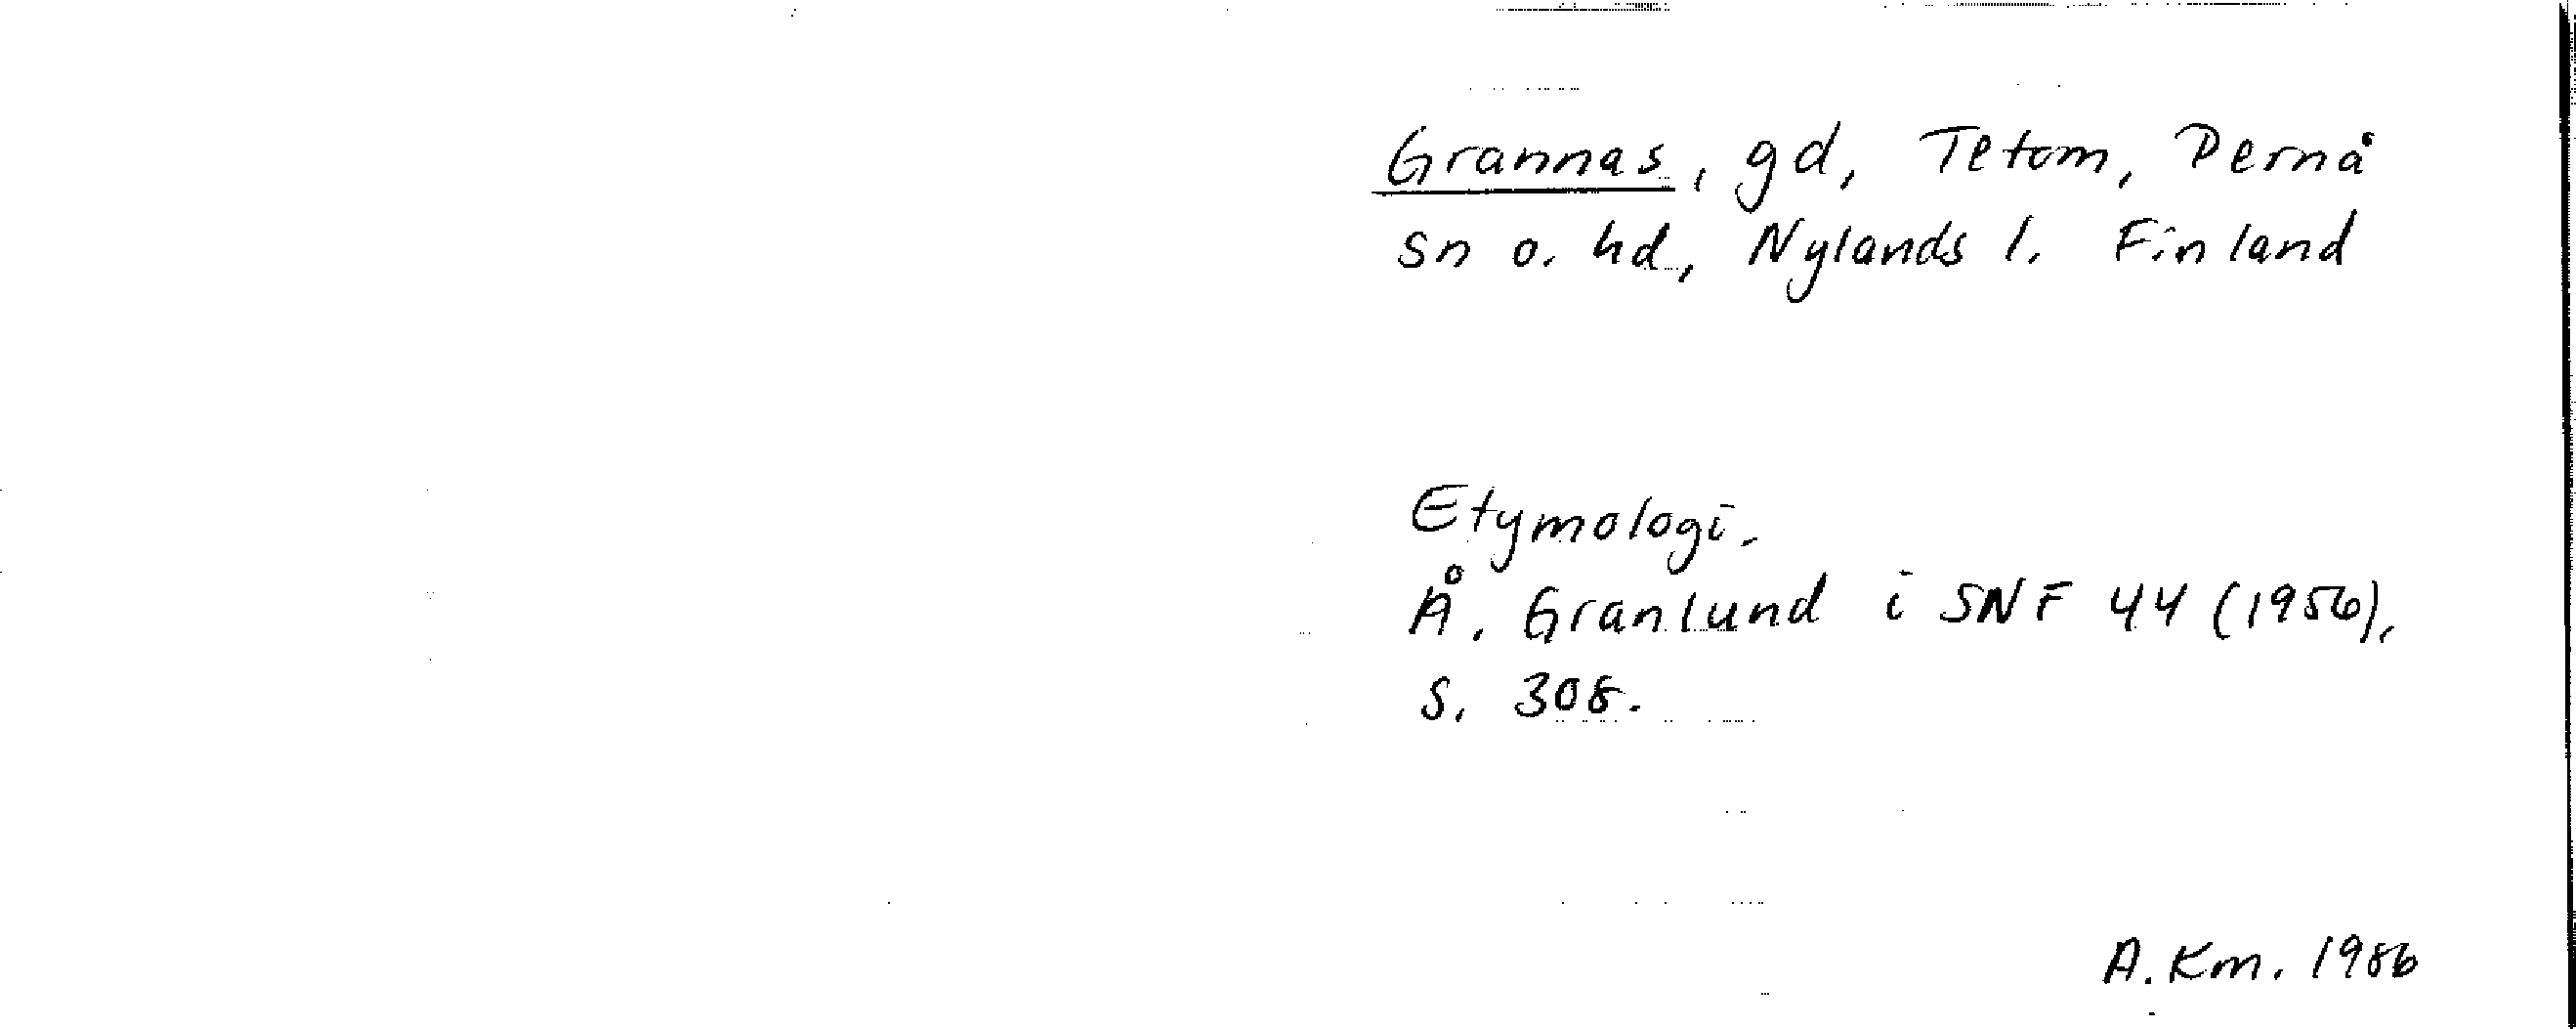 Grannas, gd, Tetom, Pernå
sn o. hd, Nylands l. Finland
Etymologi.
Å. Granlund i SNF 44 (1956),
s. 308.
A. Km. 1986